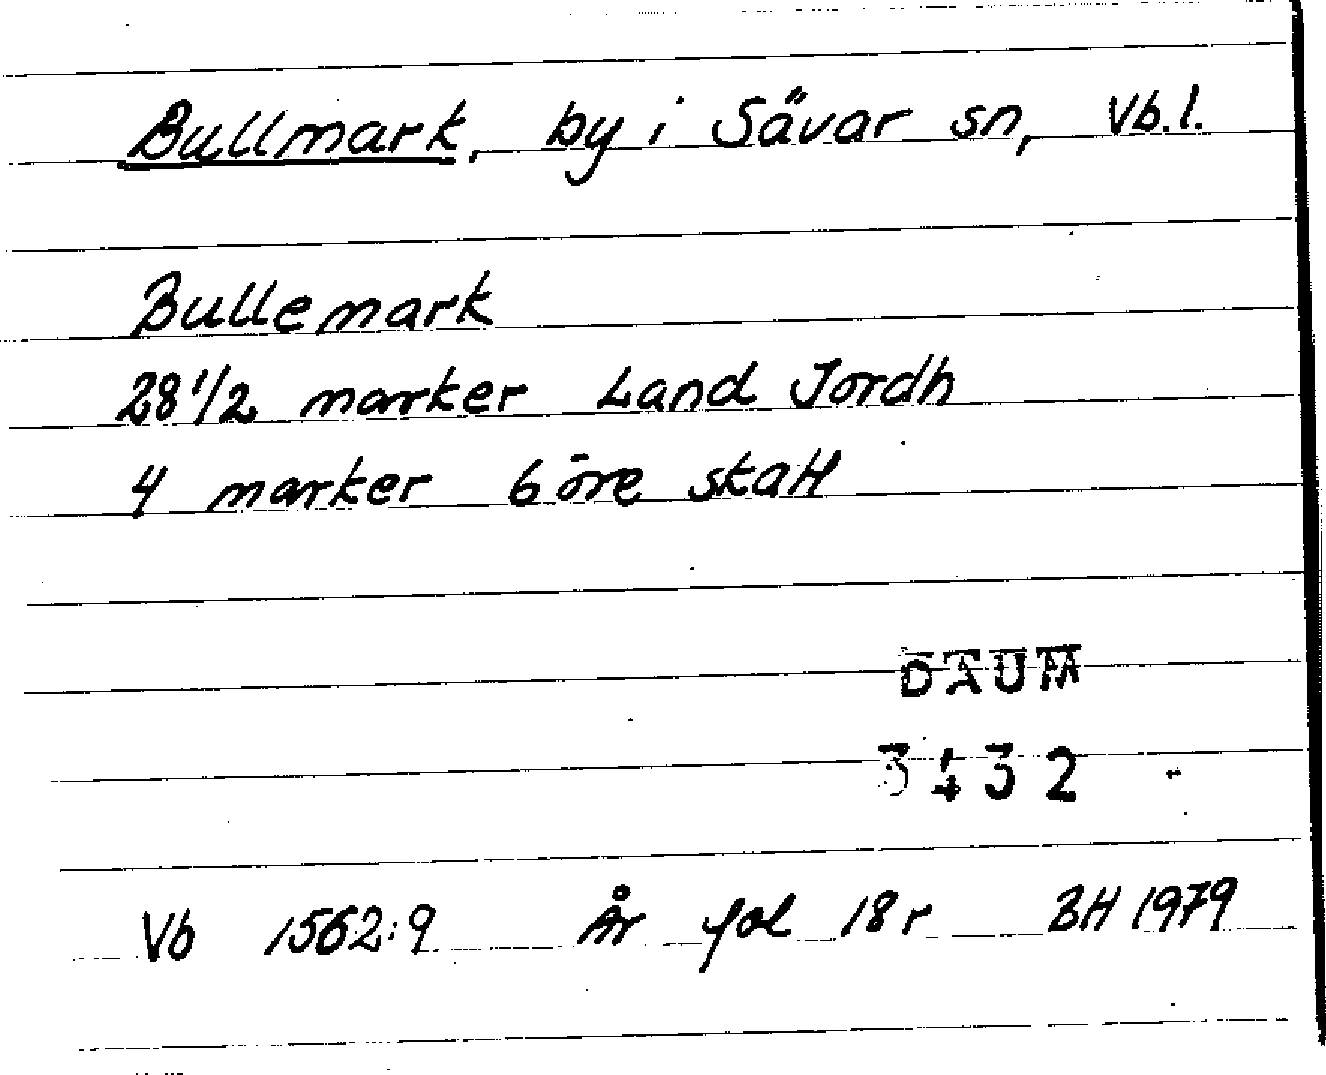 Bullmark, by i Sävar sn, Vb.l.
Bullemark
28 1/2 marker Land Jordh
4 marker 6 öre skatt
DAUM
3432
Vb 1562:9 År fol 18 r BH 1979